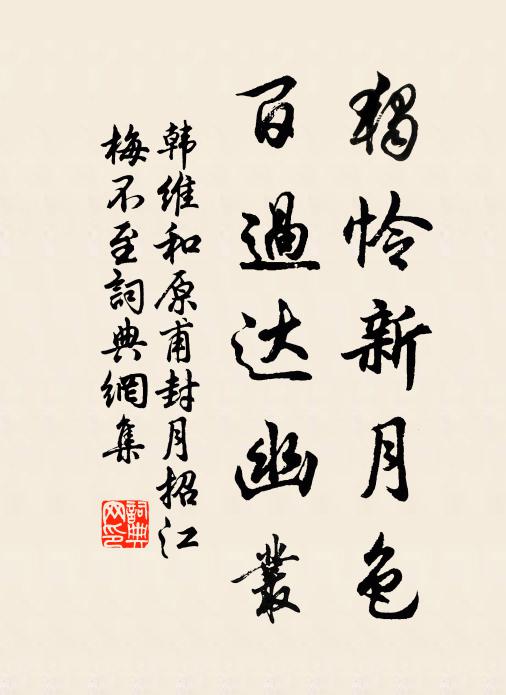 獨怜新月色
百過达幽叢
韩維和原甫封月招江
梅不至詞典網集
詞典
网印